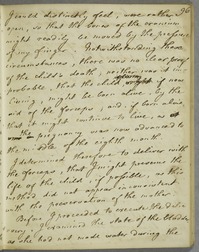 96
I could distinctly feel, were rather
open, so that the bones of the cranium
might readily be moved by the pressure
of my finger. Notwithstanding these
circumstances, there was no clear proof
of the child's death; neither was it im-
probable, that the child, might, if now
living, might be born alive, by the
aid of the forceps; and, if born alive
that it might continue to live, as
the pregnancy was now advanced to
the middle of the eighth month
I determined therefore to deliver with
the forceps, that I might preserve the
life of the child, if possible, as this
method did not appear inconsistent
with the preservation of the mother.
Before I proceeded to execute the deli-
very, I examined the state of the bladder
as she had not made water during the